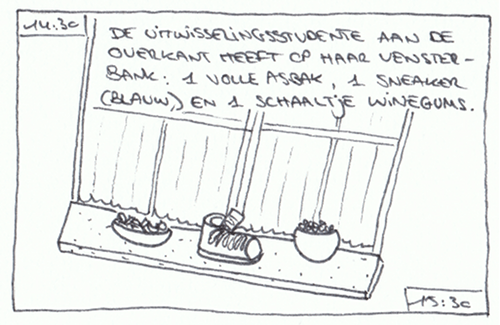 14.30
DE UITWISSELINGSSTUDENTE AAN DE
OVERKANT HEEFT OP HAAR VENSTER-
BANK: 1 VOLLE ASBAK, 1 SNEAKER
(BLAUW,) EN 1 SCHAALTJE WINEGUMS.
15.30